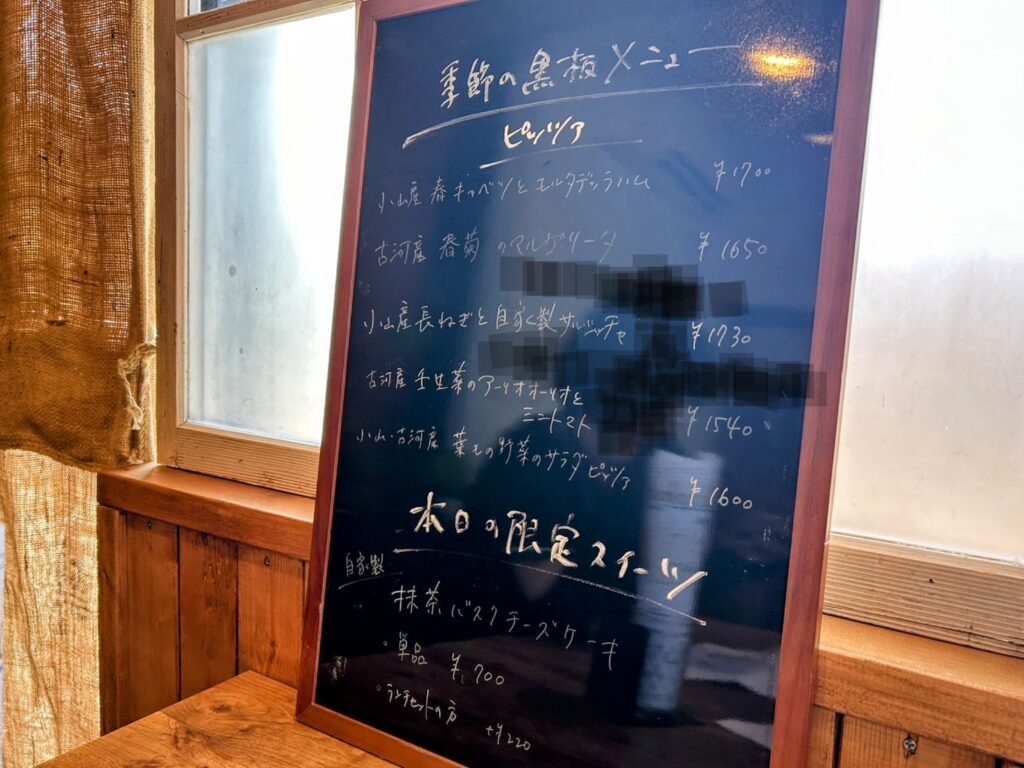 季節の黒板メニュー
ピッツァ
小山産 春キャベツとエルタデッラハム ¥1700
古河産 春菊のマルゲリータ ¥1650
小山産長ねぎと自家製サルシッチャ ¥1730
古河産 壬生菜のアーリオオーリオと
ミニトマト ¥1540
小山・古河産 葉もの野菜のサラダピッツァ ¥1600
本日の限定スイーツ
自家製
抹茶バスクチーズケーキ
・単品 ¥700
・ランチセットの方 +¥220